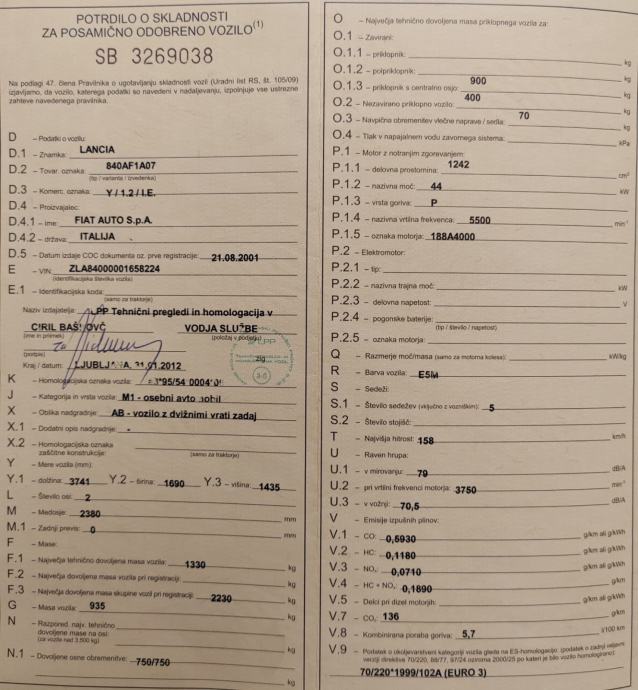 POTRDILO O SKLADNOSTI
ZA POSAMIČNO ODOBRENO VOZILO(1)
SB 3269038
Na podlagi 47. člena Pravilnika o ugotavljanju skladnosti vozil (Uradni list RS, št. 105/09)
izjavljamo, da vozilo, katerega podatki so navedeni v nadaljevanju, izpolnjuje vse ustrezne
zahteve navedenega pravilnika.
D – Podatki o vozilu:
D.1 – Znamka: LANCIA
D.2 – Tovar. oznaka: 840AF1A07
(tip / varianta / izvedenka)
D.3 – Komerc. oznaka: Y / 1.2 / I.E.
D.4 – Proizvajalec:
D.4.1 – ime: FIAT AUTO S.p.A.
D.4.2 – država: ITALIJA
D.5 – Datum izdaje COC dokumenta oz. prve registracije: 21.08.2001
E – VIN: ZLA84000001658224
(identifikacijska številka vozila)
E.1 – Identifikacijska koda:
(samo za traktorje)
Naziv izdajatelja: LPP Tehnični pregledi in homologacija v
VODJA SLUŽBE
(ime in priimek) (položaj v podjetju)
za
(podpis) žig
Kraj / datum: LJUBLJANA, 31.01.2012
K – Homologacijska oznaka vozila:
J – Kategorija in vrsta vozila: M1 - osebni avtomobil
X – Oblika nadgradnje: AB - vozilo z dvižnimi vrati zadaj
X.1 – Dodatni opis nadgradnje: -
X.2 – Homologacijska oznaka
zaščitne konstrukcije: (samo za traktorje)
Y – Mere vozila (mm):
Y.1 – dolžina: 3741 Y.2 – širina: 1690 Y.3 – višina: 1435
L – Število osi: 2
M – Medosje: 2380 mm
M.1 – Zadnji previs: 0 mm
F – Mase:
F.1 – Največja tehnično dovoljena masa vozila: 1330 kg
F.2 – Največja dovoljena masa vozila pri registraciji: kg
F.3 – Največja dovoljena masa skupine vozil pri registraciji: 2230 kg
G – Masa vozila: 935 kg
N – Razpored. najv. tehnično
dovoljene mase na osi: kg
(za vozila nad 3.500 kg)
N.1 – Dovoljene osne obremenitve: 750/750
kg
O – Največja tehnično dovoljena masa priklopnega vozila za:
O.1 – Zavirani:
O.1.1 – priklopnik: kg
O.1.2 – polpriklopnik: kg
O.1.3 – priklopnik s centralno osjo: 900 kg
O.2 – Nezavirano priklopno vozilo: 400 kg
O.3 – Navpična obremenitev vlečne naprave / sedla: 70 kg
O.4 – Tlak v napajalnem vodu zavornega sistema: kPa
P.1 – Motor z notranjim zgorevanjem:
P.1.1 – delovna prostornina: 1242 cm³
P.1.2 – nazivna moč: 44 kW
P.1.3 – vrsta goriva: P
P.1.4 – nazivna vrtilna frekvenca: 5500 min⁻¹
P.1.5 – oznaka motorja: 188A4000
P.2 – Elektromotor:
P.2.1 – tip:
P.2.2 – nazivna trajna moč: kW
P.2.3 – delovna napetost: V
P.2.4 – pogonske baterije:
(tip / število / napetost)
P.2.5 – oznaka motorja:
Q – Razmerje moč/masa (samo za motorna kolesa): kW/kg
R – Barva vozila: E5M
S – Sedeži:
S.1 – Število sedežev (vključno z vozniškim): 5
S.2 – Število stojišč:
T – Najvišja hitrost: 158 km/h
U – Raven hrupa:
U.1 – v mirovanju: 79 dB/A
U.2 – pri vrtilni frekvenci motorja: 3750 min⁻¹
U.3 – v vožnji: 70,5 dB/A
V – Emisije izpušnih plinov:
V.1 – CO: 0,5930 g/km ali g/kWh
V.2 – HC: 0,1180 g/km ali g/kWh
V.3 – NOx: 0,0710 g/km ali g/kWh
V.4 – HC + NOx: 0,1890 g/km
V.5 – Delci pri dizel motorjih: g/km ali g/kWh
V.7 – CO₂: 136 g/km
V.8 – Kombinirana poraba goriva: 5,7 l/100 km
V.9 – Podatek o okoljevarstveni kategoriji vozila glede na ES-homologacijo: (podatek o zadnji veljavni
verziji direktive 70/220, 88/77, 97/24 oziroma 2000/25 po kateri je bilo vozilo homologirano)
70/220*1999/102A (EURO 3)